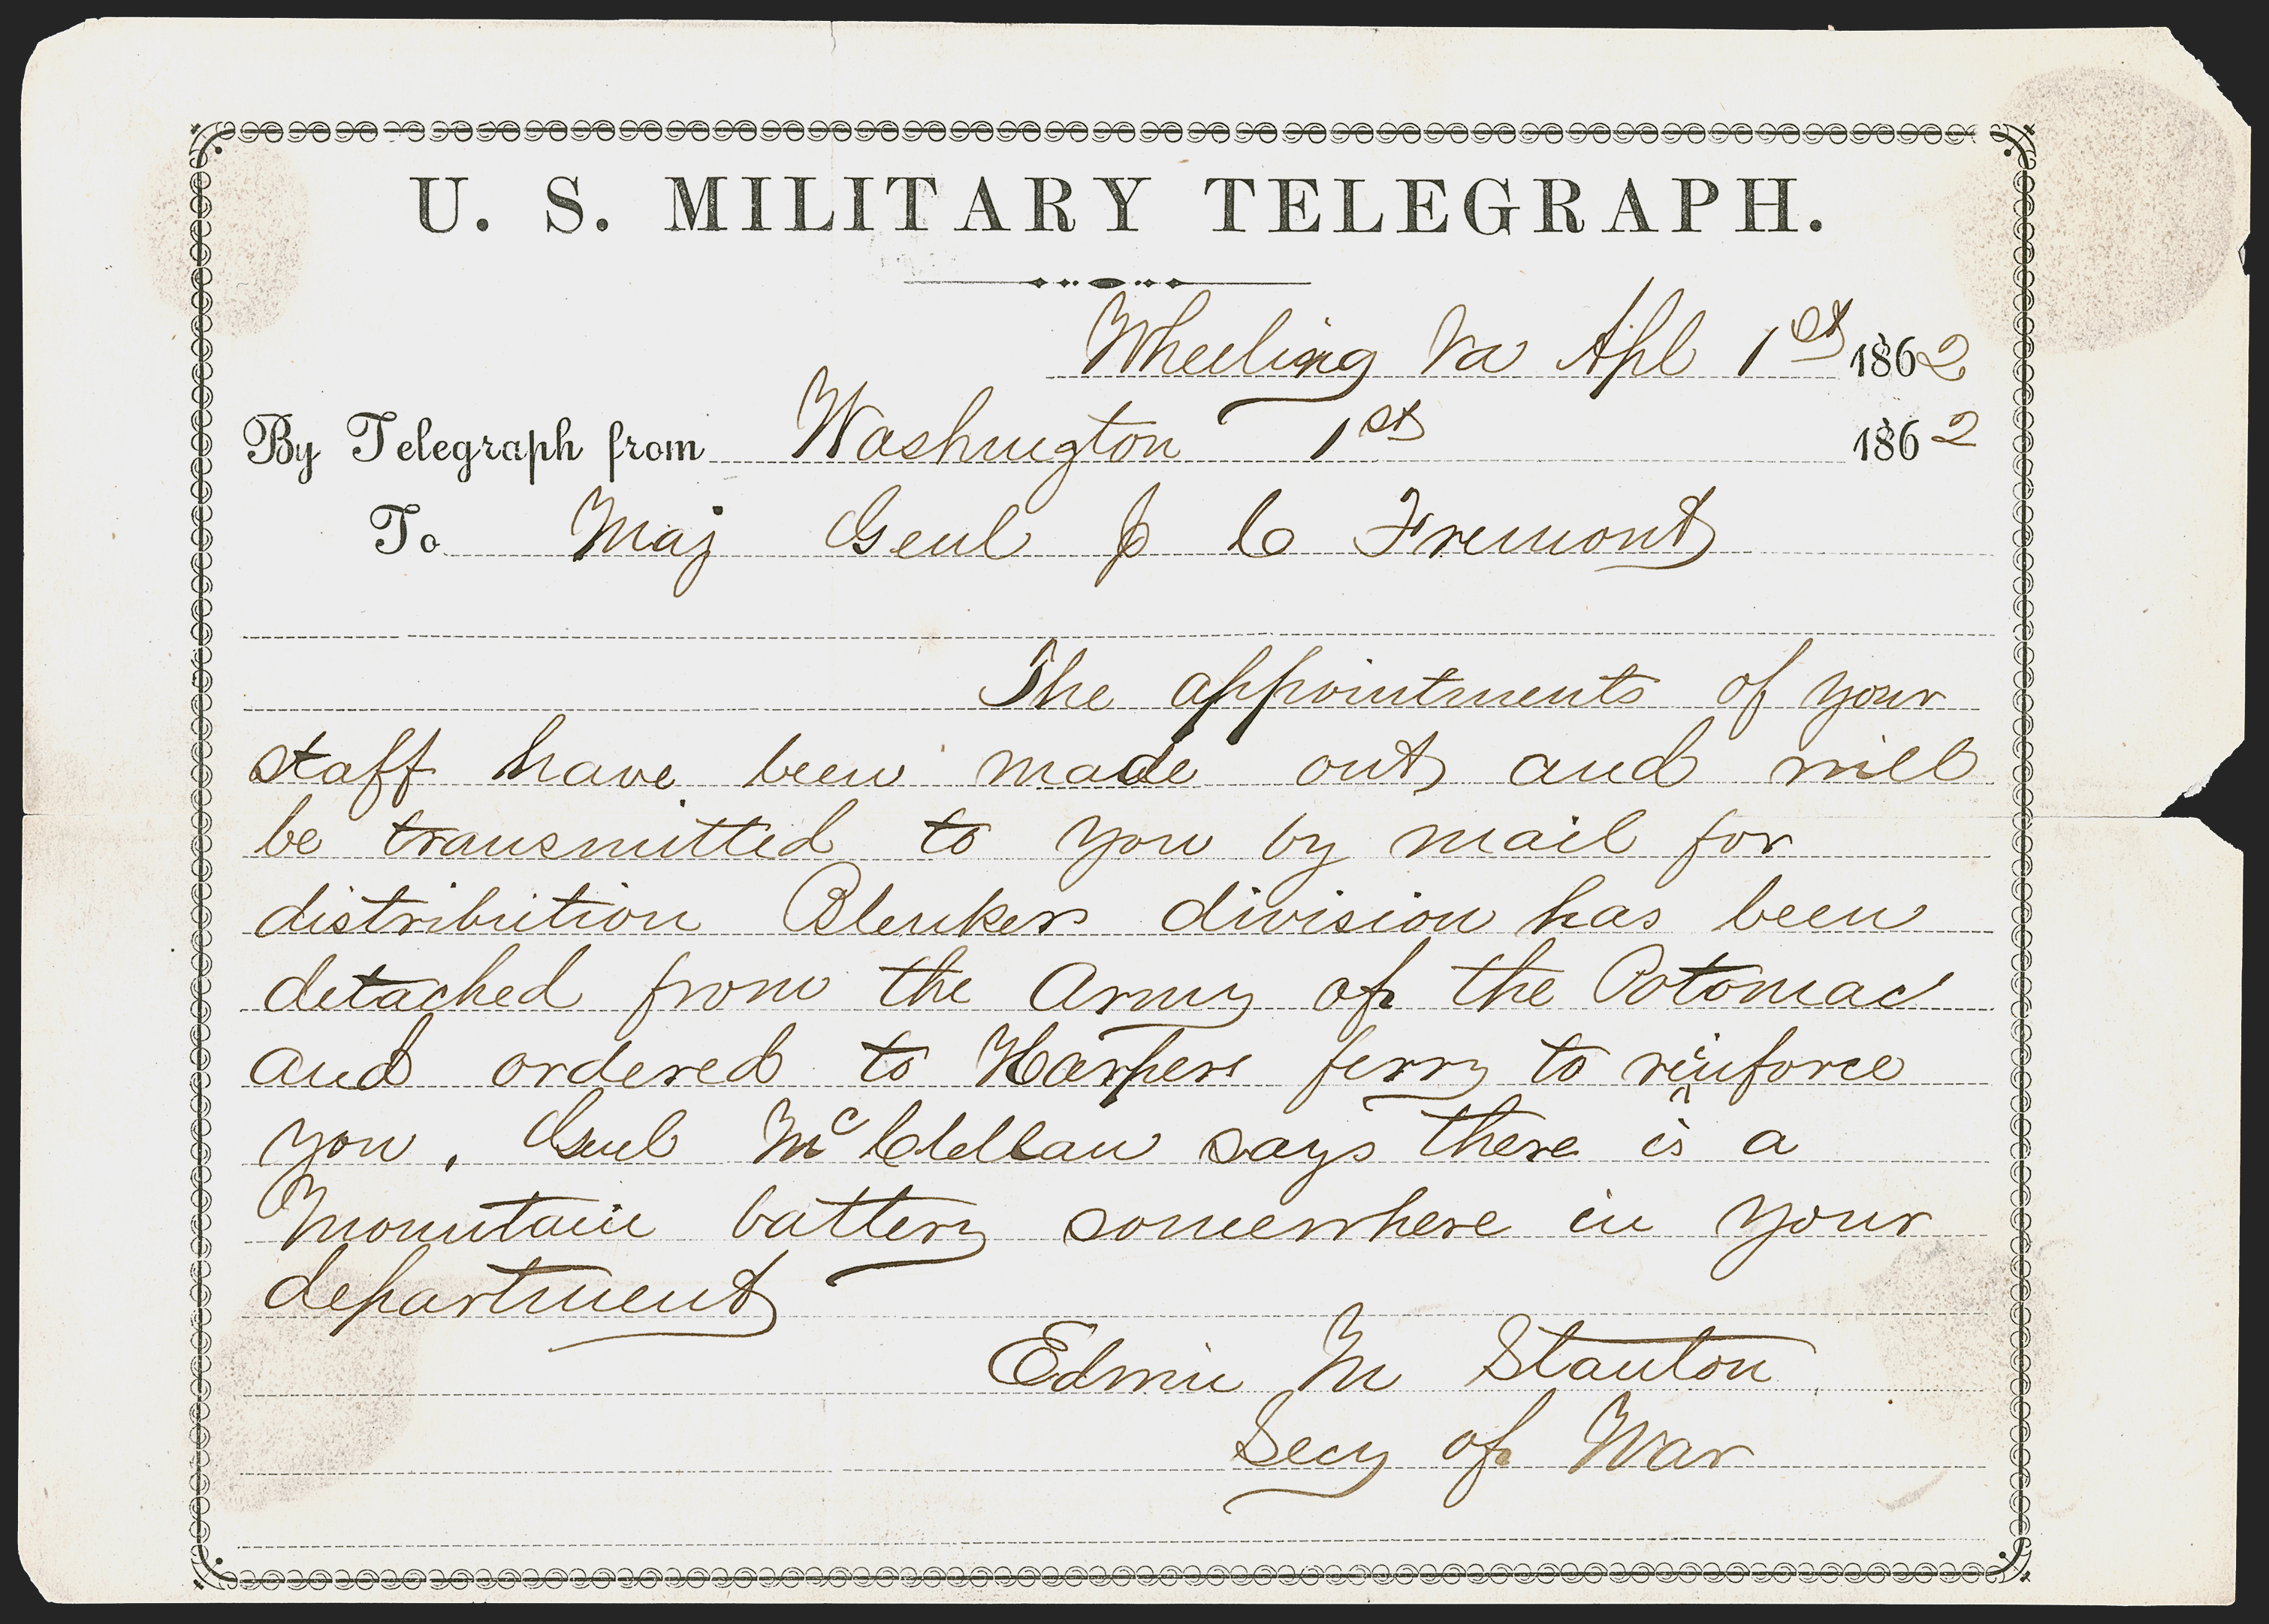 U. S. MILITARY TELEGRAPH.
Wheeling Va Apl 1st 1862
By Telegraph from Washington 1st 1862
To Maj Genl J C Fremont
The appointments of your
staff have been made out and will
be transmitted to you by mail for
distribution Blenkers division has been
detached from the Army of the Potomac
and ordered to Harpers ferry to reinforce
you. Genl McClellan says there is a
Mountain battery somewhere in your
department
Edwin M Stanton
Secy of War